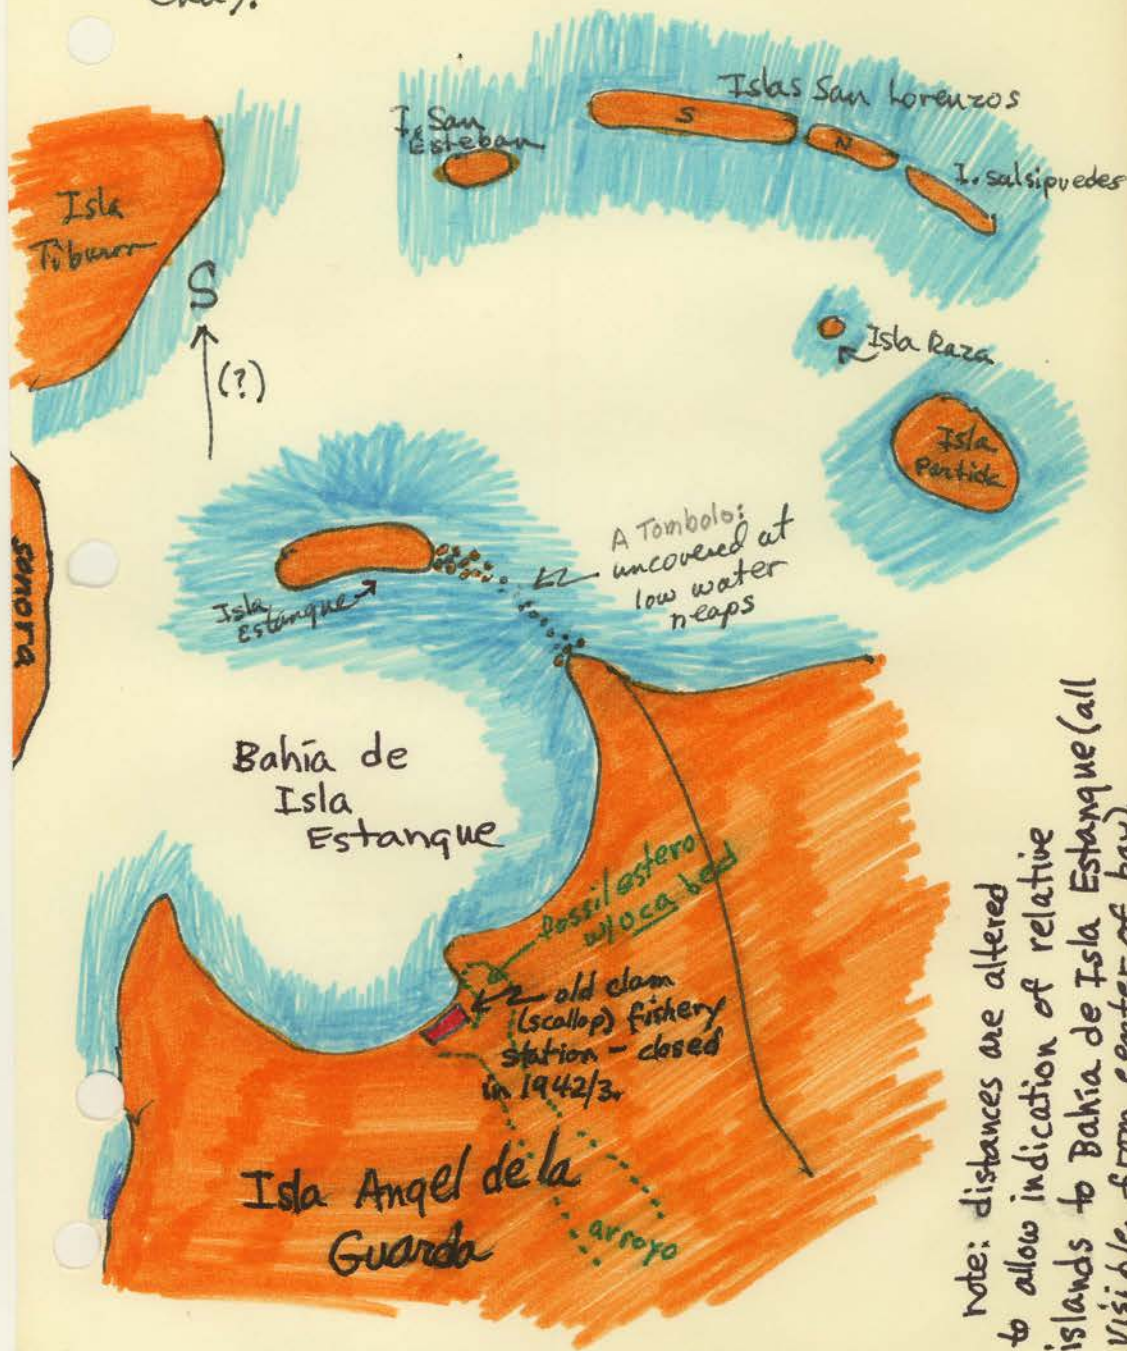 Islas San Lorenzos
I. San
Esteban
S
N
I. salsipuedes
Isla
Tiburon
S
(?)
Isla Raza
Isla
Partida
sonora
A Tombolo:
uncovered at
low water
neaps
Isla
Estanque
Bahía de
Isla
Estanque
fossil estero
w/oca bed
old clam
(scallop) fishery
station - closed
in 1942/3.
Isla Angel de la
Guarda
arroyo
note: distances are altered
to allow indication of relative
islands to Bahia de Isla Estanque (all
visible from center of bay)